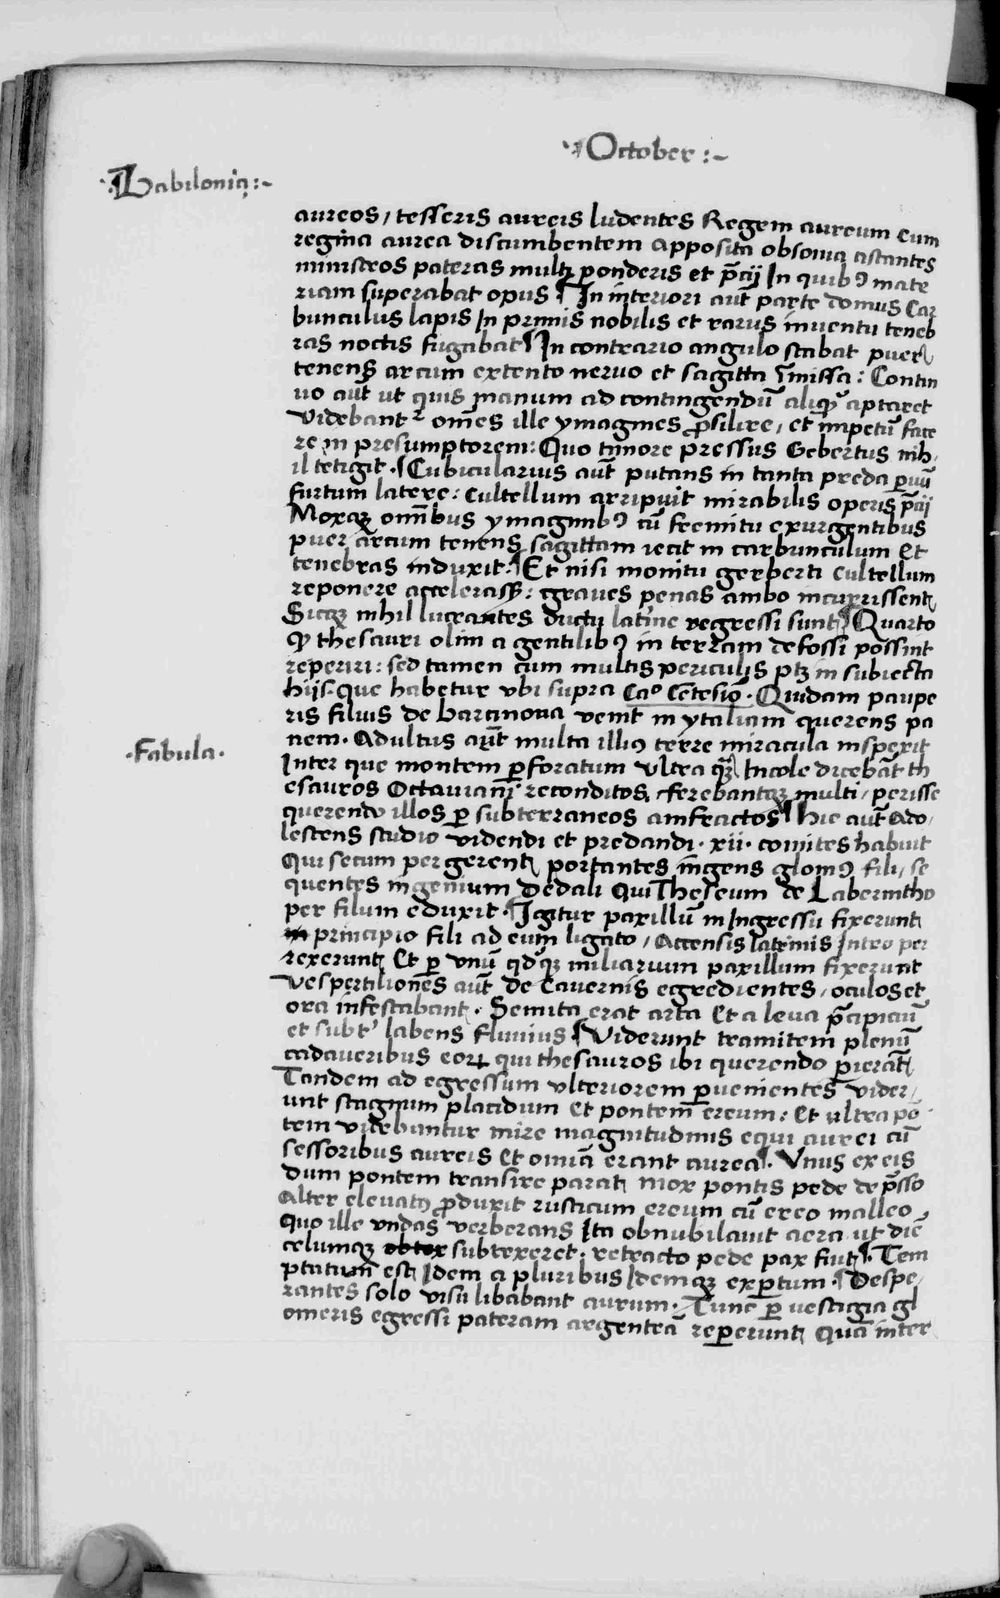 ·¶October:~
·¶Babilonia:~
aureos / tesseris aureis ludentes Regem aureum cum
regina aurea discumbentem apposita obsonia astantes
ministros pateras multꝫ ponderis et p̄cij In quibꝰ mate
riam superabat opus ¶ In interiori aut̄ parte domus Car
bunculus lapis In primis nobilis et rarus inventu teneb
ras noctis fugabat ¶ In contrario angulo stabat puer
tenens arcum extento nervo et sagitta īmissa: Contin
uo aut̄ ut quis manum ad contingendū aliqͥ aptaret
videbantᷣ om̄es ille ymagines ꝓsilire, et impetū face
re in presumptorem: Quo timore pressus Gebertus nih
il tetigit. ¶ Cubicularius aut̄ putans in tanta preda ꝑvū
furtum latere: Cultellum arripuit mirabilis operis p̄cij
Moxqꝫ omnībus ymaginibꝰ cū fremitu exurgentibus
puer arcum tenens sagittam iecit in carbunculum Et
tenebras induxit. ¶ Et nisi monitu gerberti cultellum
reponere accelerassꝫ: graves penas ambo incurrissent
Sicqꝫ nihil lucrantes ductu latīne regressi sunt ¶ Quarto
ꝙ thesauri olim a gentilibꝰ in terram defossi possint
reperiri: sed tamen cum multis periculis ptꝫ in subiecta
hijs. que habetur vbi supra Caͦ Centesiͦ. Quidam paupe
ris filius de barcinona venit in ytaliam querens pa
nem. Adultus aut̄ multa illiꝰ terre miracula inspexit
·Fabula·
Inter que montem ꝑforatum vltra qꝫ Incole dicebāt th
esauros Octaviani reconditos, ferebantqꝫ multi, perisse
querendo illos ꝑ subterraneos amfractos ¶ hic aut̄ Ado
lescens studio videndi et predandi. xii. comites habuit
Qui secum pergerent portantes ingens glomꝰ fili, se
quentes ingenium Dedali Qui Theseum de Laberintho
per filum eduxit. ¶ Igitur paxillū in Ingressu fixerunt
in principio fili ad eum ligato, Accensis laternis Intro per
rexerunt Et ꝑ vnū qͦdqꝫ miliarium paxillum fixerunt
Vespertiliones aut̄ de cavernis egredientes, oculos et
ora infestabant. Semita erat arta Et a leva p̄cipiciū
et subtᷣ labens fluvius ¶ Viderunt tramitem plenū
cadaveribus eoꝝ qui thesauros ibi querendo ꝑierāt
Tandem ad egressum vlteriorem ꝑvenientes vider
unt stagnum placidum Et pontem ereum: Et ultra pō
tem videbantur mire magnitudinis equi aurei cū
sessoribus aureis Et omīa erant aurea. ¶ Vnus ex eis
dum pontem transire parat mox pontis pede dep̄sso
Alter elevatꝰ ꝓduxit rusticum ereum cū ereo malleo
quo ille vndas verberans Ita obnubilavit aera ut diē
celumqꝫ obtex subtexeret. retracto pede pax fuit ¶. Tem
ptatum est Idem a pluribus Idemqꝫ exꝑtum. ¶ Despe
rantes solo visu libabant aurum. Tunc ꝑ vestigia gl
omeris egressi pateram argenteā reꝑerunt Quā inter